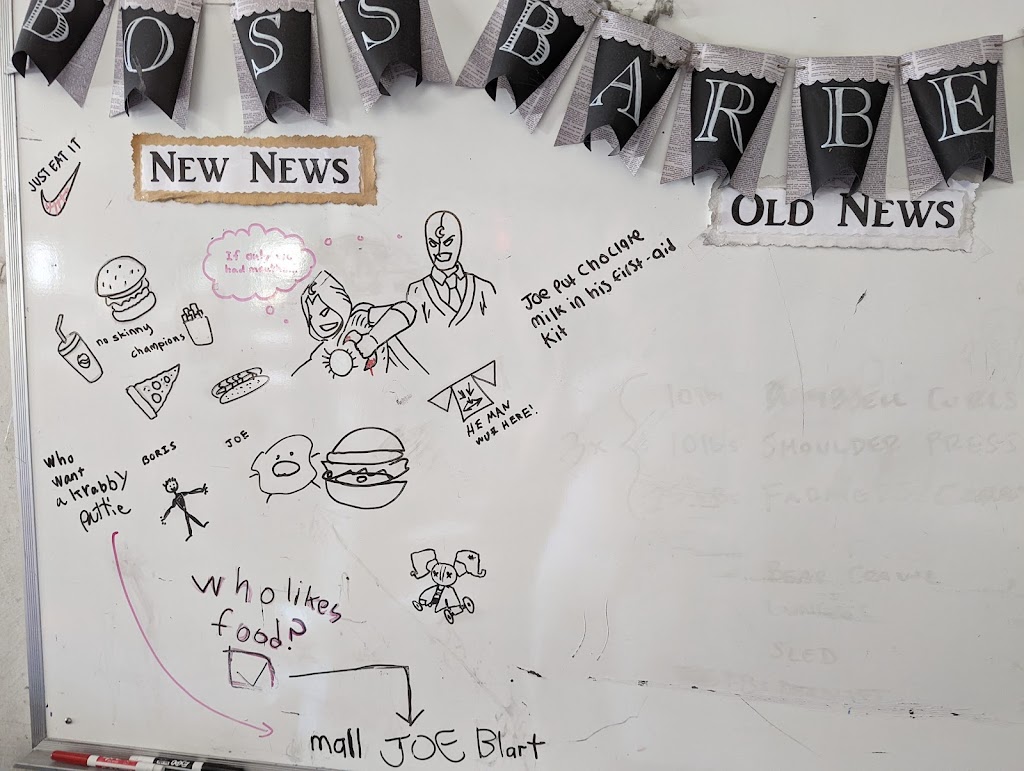 BOSS BARBE
JUST EAIT IT
NEW NEWS
OLD NEWS
If only we
had mouths...
Joe Put Choclate
milk in his first-aid
Kit
no skinny
champions
HE MAN
WUZ HERE!
Who
want
a krabby
pattie
BORIS
JOE
who likes
food?
mall JOE Blart
3x
10lbs
CURLS
10lbs SHOULDER PRESS
BEAR CRAWL
LUNGES
SLED